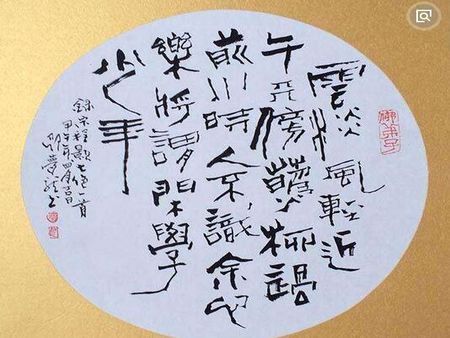 雲淡風輕近
午天傍花隨柳過
前川時人不識余心
樂將謂閑學
少年
錄宋程顥七絕一首
甲午年四月吉日